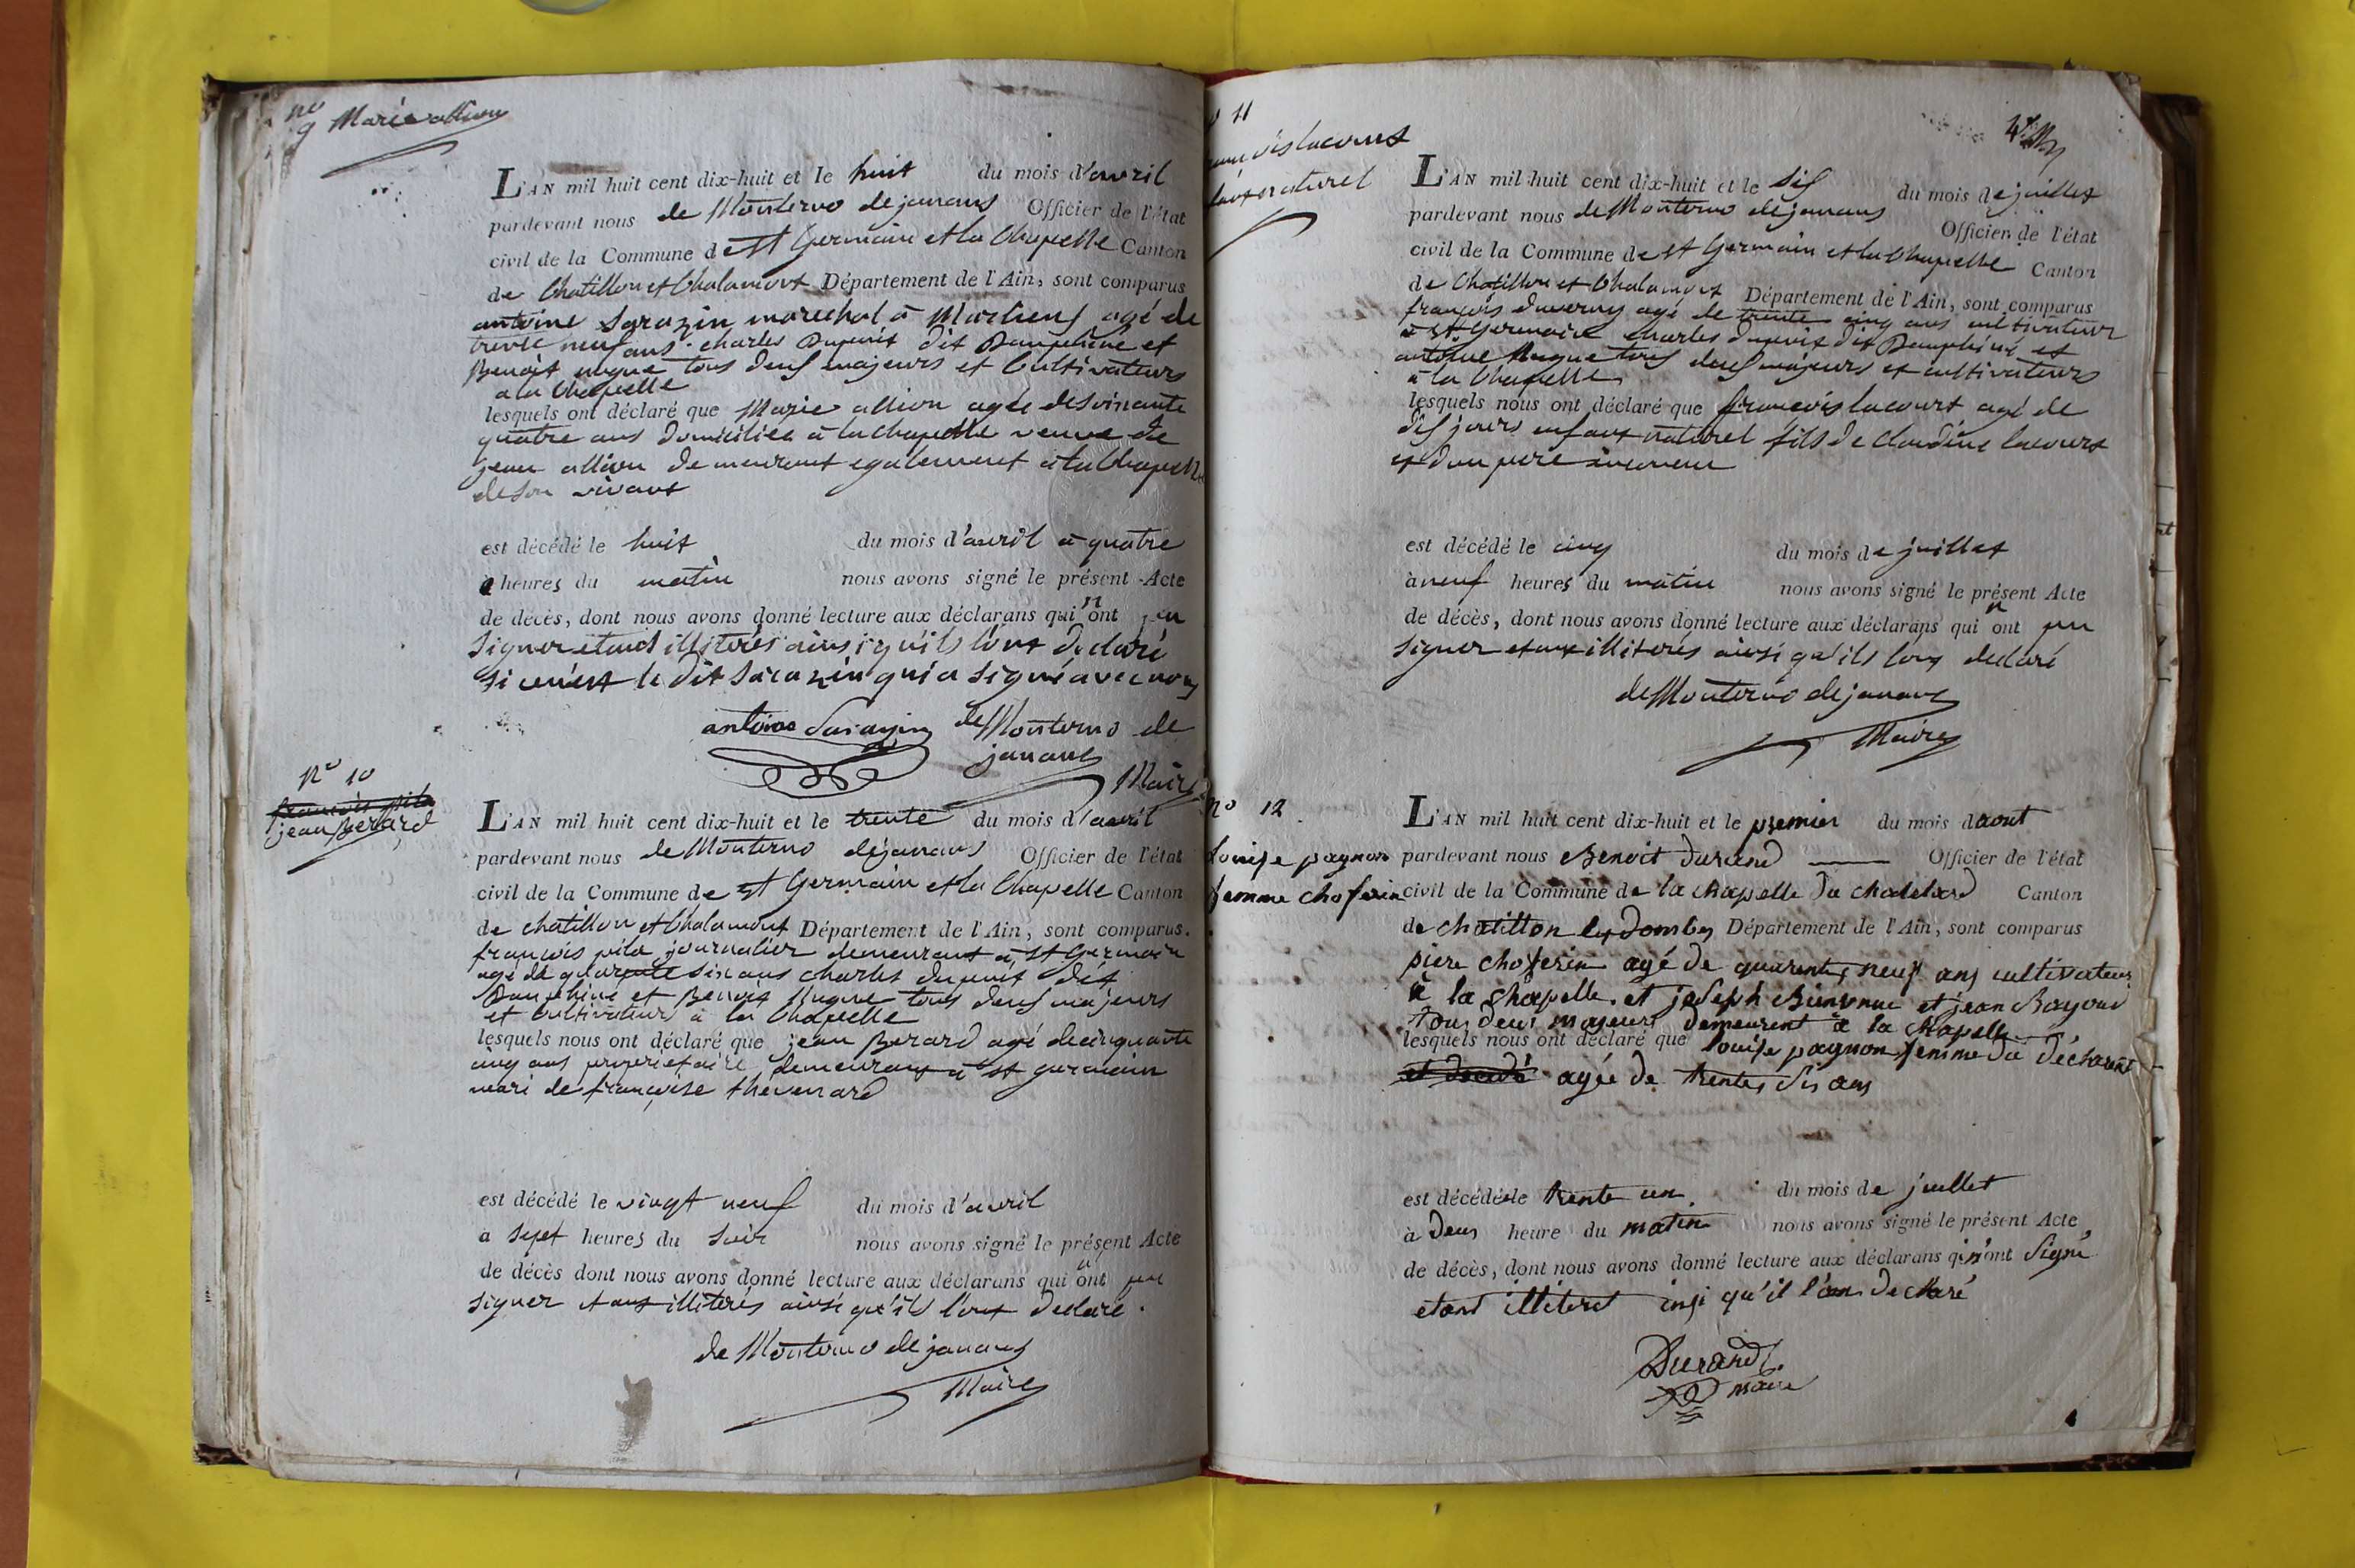 no
9 Marie allion
L'AN mil huit cent dix-huit et le huit du mois d'avril
pardevant nous de Monterno dejanans Officier de l'état
civil de la Commune de st Germain et la Chapelle Canton
de Chatillon et Chalamont Département de l'Ain, sont comparus
antoine Sarazin marechal à Marlieux agé de
trente neuf ans charles Dupuit dit Dauphine et
Benoit nugue tous deux majeurs et Cultivateurs
a la Chapelle
lesquels ont déclaré que Marie allion agée desoixante
quatre ans domiciliée à la Chapelle veuve de
jean allion demeurant egalement à la Chapelle
de son vivant
est décédé le huit du mois d'avril à quatre
heures du matin nous avons signé le présent Acte
de décès, dont nous avons donné lecture aux déclarans qui n'ont pu
signer etant illiterés ainsi qu'ils l'ont declaré
si ce n'est le dit Sarazin qui a signé avec nous
antoine Sarazin de Monterno de
janans
Maire
no 10
françois pila
jean Berard
L'AN mil huit cent dix-huit et le trente du mois d'avril
pardevant nous de Monterno dejanans Officier de l'état
civil de la Commune de st Germain et la Chapelle Canton
de chatillon et Chalamont Département de l'Ain, sont comparus.
françois pila journalier demeurant à st Germain
agé de quarante six ans charles dupuit dit
Dauphine et Benoit Nugue tous deux majeurs
et Cultivateurs à la Chapelle
lesquels nous ont déclaré que jean Berard agé de cinquante
cinq ans proprietaire demeurant à st germain
mari de françoise thevenard
est décédé le vingt neuf du mois d'avril
a sept heures du soir nous avons signé le présent Acte
de décès dont nous avons donné lecture aux déclarans qui n'ont pu
signer etant illiterés ainsi qu'ils l'ont declaré.
de Monterno dejanans
Maire
11
françois lacourt
enfant naturel
L'AN mil huit cent dix-huit et le six du mois de juillet
pardevant nous de Monterno dejanans Officier de l'état
civil de la Commune de st Germain et la Chapelle Canton
de Chatillon et Chalamont Département de l'Ain, sont comparus
françois duverny agé de trente cinq ans cultivateur
à st Germain charles dupuit dit Dauphine et
antoine Nugue tous deux majeurs et cultivateurs
à la Chapelle
lesquels nous ont déclaré que françois lacourt agé de
dix jours enfant naturel fils de claudine lacourt
et d'un pere inconnu
est décédé le cinq du mois de juillet
à neuf heures du matin nous avons signé le présent Acte
de décès, dont nous avons donné lecture aux déclarans qui n'ont pu
signer etant illiterés ainsi qu'ils l'ont declaré
de Monterno dejanans
Maire
no 12
Louise pagnon
femme choferin
L'AN mil huit cent dix-huit et le premier du mois daout
pardevant nous Benoit durand Officier de l'état
civil de la Commune de la chapelle du chatelard Canton
de chatillon les dombes Département de l'Ain, sont comparus
piere choferin agé de quarente neuf ans cultivateur
à la chapelle. et joseph Bienvenue et jean Bayoud
tous deux majeurs demeurent a la chapelle
lesquels nous ont déclaré que louise pagnon femme du déchorent
et décédé agée de trentes six ans
est décédée le trente un. du mois de juillet
à deux heure du matin nous avons signé le présent Acte
de décès, dont nous avons donné lecture aux déclarans qi n'ont signé
etant illiteret insi qu'il l'on declaré
Durand
maire